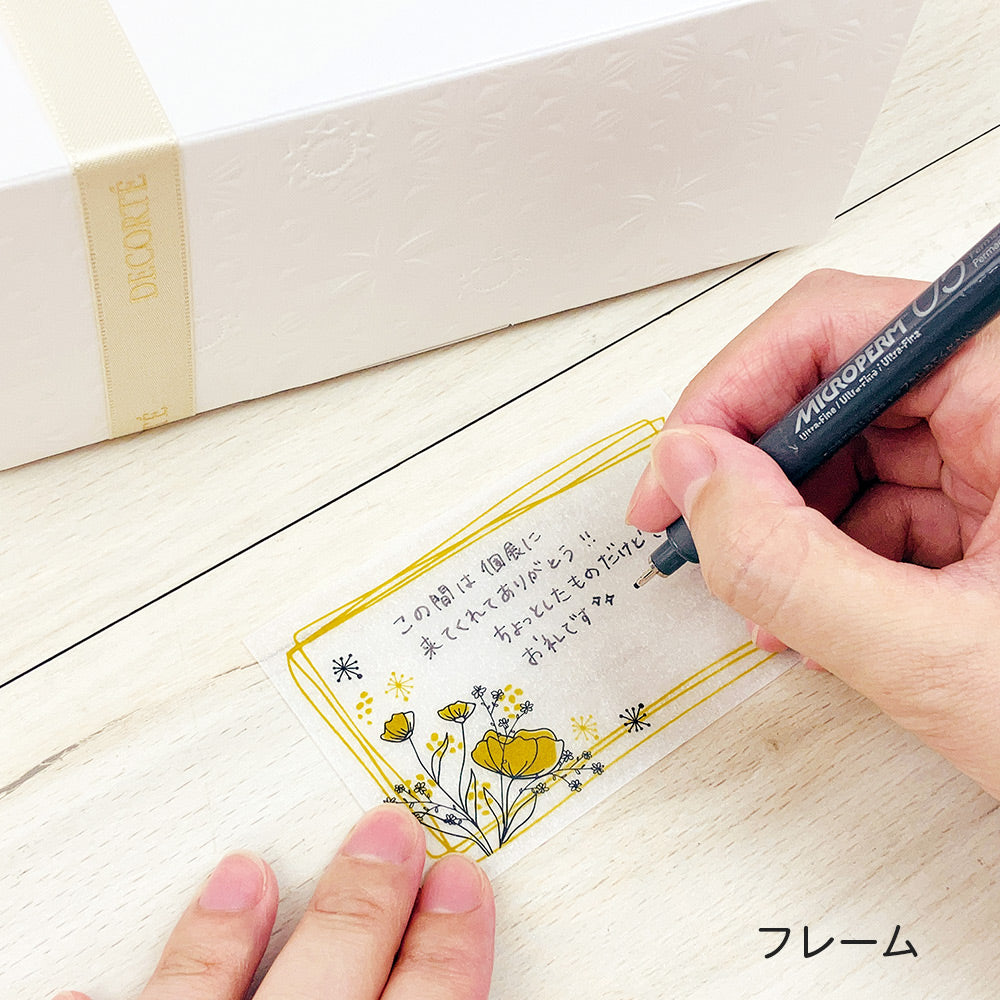 DECORTÉ
MICROPERM 05
Ultra-Fine / Ultra-Fine / Ultra-Fine
この間は個展に
来てくれてありがとう!!
ちょっとしたものだけど
お礼です
フレーム